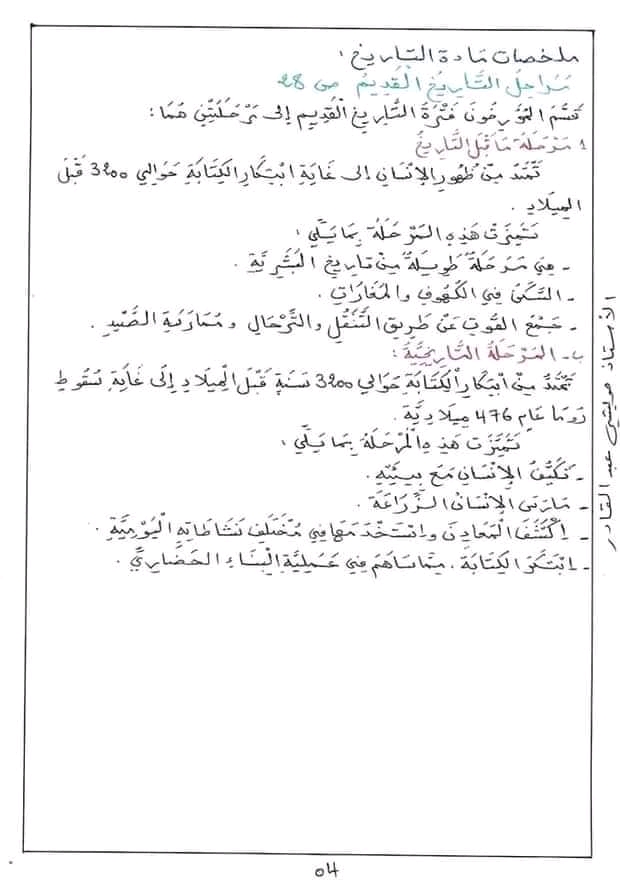 ملخصات مادة التاريخ :
مَرَاحِلُ التَّارِيخِ الْقَدِيمِ ص 28
قَسَّمَ المُؤَرِخُونَ فَتْرَةَ التَّارِيخِ الْقَدِيمِ إلى مَرْحَلَتَيْنِ هُمَا :
أ مَرْحَلَةُ مَا قَبْلَ التَّارِيخُ
تَمْتَدُّ مِنْ ظُهُورِ الإِنْسَانِ إلى غَايَةِ ابْتِكَارِ الكِتَابَةِ حَوَالِي 3200 قَبْلَ
المِيلَادِ .
تَتَمَيَّزَتْ هَذِهِ المَرْحَلَةُ بِمَا يَلِي :
- هِيَ مَرْحَلَةٌ طَوِيلَةٌ مِنْ تَارِيخِ البَشَرِيَّةِ .
- السَّكَنُ فِي الكُهُوفِ والمُغَارَاتِ .
- جَمْعُ القُوتِ عَنْ طَرِيقِ التَّنَقُلِ والتَّرْحَالِ ومُمَارَسَةِ الصَّيْدِ .
ب - المَرْحَلَةُ التَّارِيخِيَّةُ :
تَمْتَدُّ مِنْ ابْتِكَارِ الْكِتَابَةِ حَوَالِي 3200 سَنَةٍ قَبْلَ الْمِيلَادِ إِلَى غَايَةِ سُقُوطِ
رُومَا عَامَ 476 مِيلَادِيَّة .
تَمَيَّزَتْ هَذِهِ الْمَرْحَلَةُ بِمَا يَلِي :
- تَكَيُّفُ الإِنْسَانِ مَعَ بِيئَتِهِ .
- مَارَسَ الإِنْسَانُ الزِّرَاعَةَ .
- اِكْتَشَفَ المَعَادِنَ واسْتَخْدَمَهَا فِي مُخْتَلَفِ نَشَاطَاتِهِ الْيَوْمِيَّةِ .
- ابْتَكَرَ الكِتَابَةَ . مِمَّا سَاهَمَ فِي عَمَلِيَّةِ الْبِنَاءِ الحَضَارِيِّ .
04